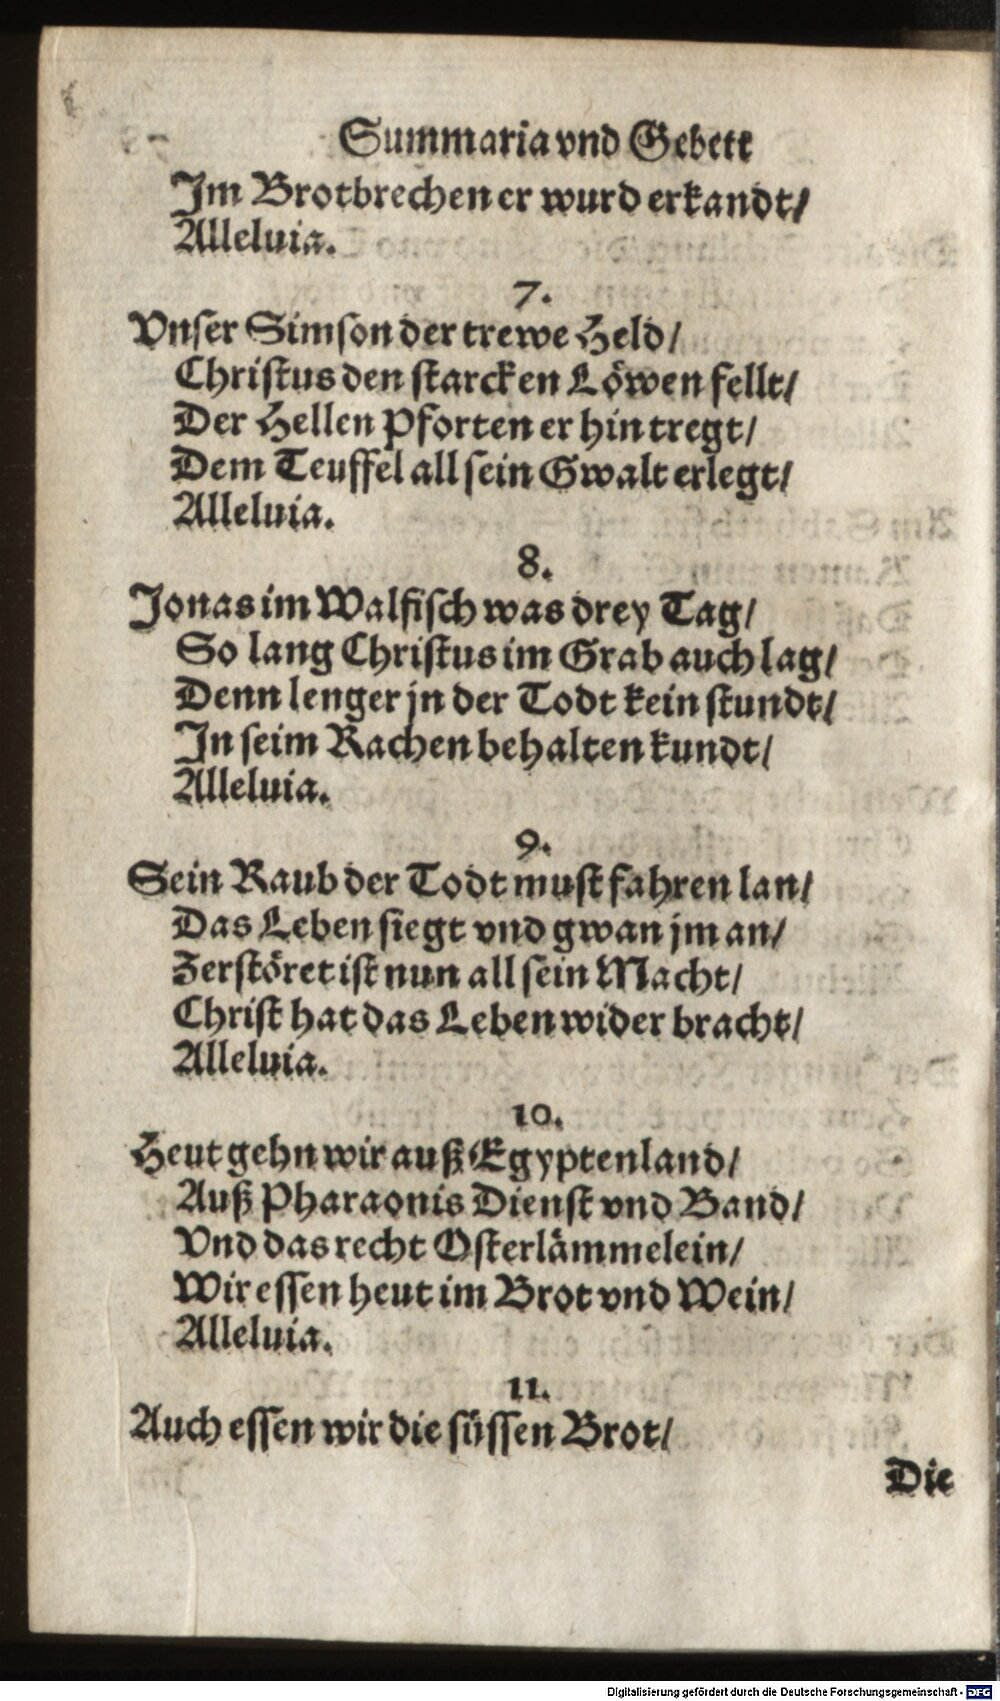 Summaria vnd Gebett
Im Brotbrechen er wurd erkandt/
Alleluia.
7.
Vnser Simson der trewe Held/
Christus den starcken Löwen fellt/
Der Hellen Pforten er hin tregt/
Dem Teuffel all sein Gwalt erlegt/
Alleluia.
8.
Jonas im Walfisch was drey Tag/
So lang Christus im Grab auch lag/
Denn lenger jn der Todt kein stundt/
In seim Rachen behalten kundt/
Alleluia.
9.
Sein Raub der Todt must fahren lan/
Das Leben siegt vnd gwan jm an/
Zerstöret ist nun all sein Macht/
Christ hat das Leben wider bracht/
Alleluia.
10.
Heut gehn wir auß Egyptenland/
Auß Pharaonis Dienst vnd Band/
Vnd das recht Osterlämmelein/
Wir essen heut im Brot vnd Wein/
Alleluia.
11.
Auch essen wir die süssen Brot/
Die
Digitalisierung gefördert durch die Deutsche Forschungsgemeinschaft - DFG